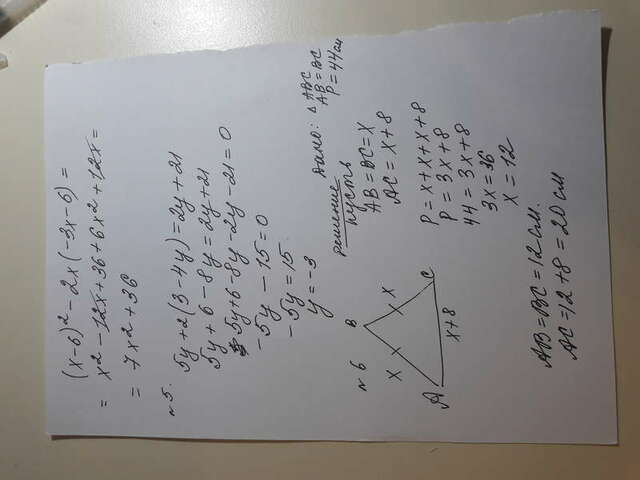 (x-6)² - 2x(-3x-6) =
= x² - 12x + 36 + 6x² + 12x =
= 7x² + 36
№5.
5y + 2(3 - 4y) = 2y + 21
5y + 6 - 8y = 2y + 21
5y + 6 - 8y - 2y - 21 = 0
-5y - 15 = 0
-5y = 15
y = -3
Дано: △ ABC
AB = BC
P = 44 см
№6
решение
пусть
AB = BC = x
AC = x + 8
B
x
x
A
C
x+8
P = x + x + x + 8
P = 3x + 8
44 = 3x + 8
3x = 36
x = 12
AB = BC = 12 см.
AC = 12 + 8 = 20 см